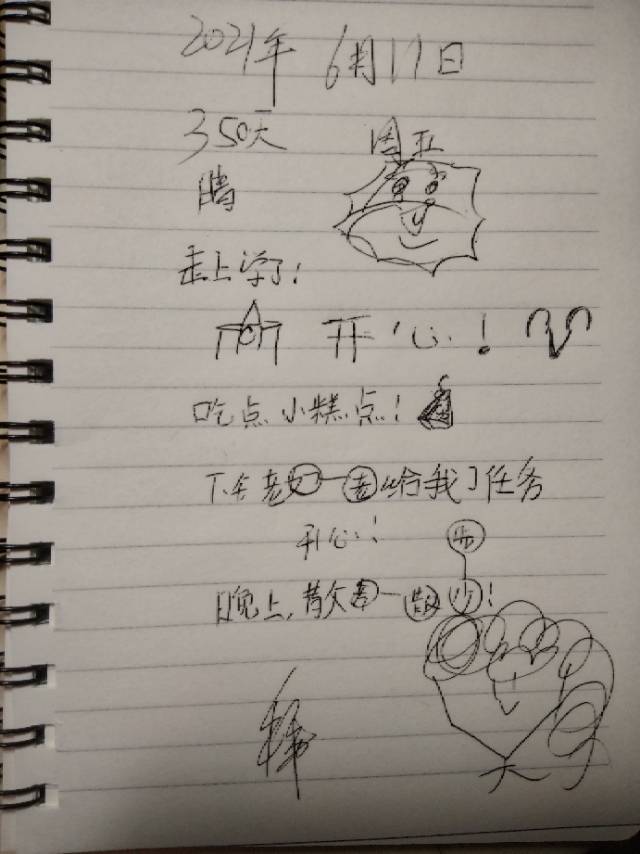 2021年 6月11日
350天 周五
晴
上学了!
开心!
吃点小糕点!
下午老 给我了任务
开心!
晚上, 散步!